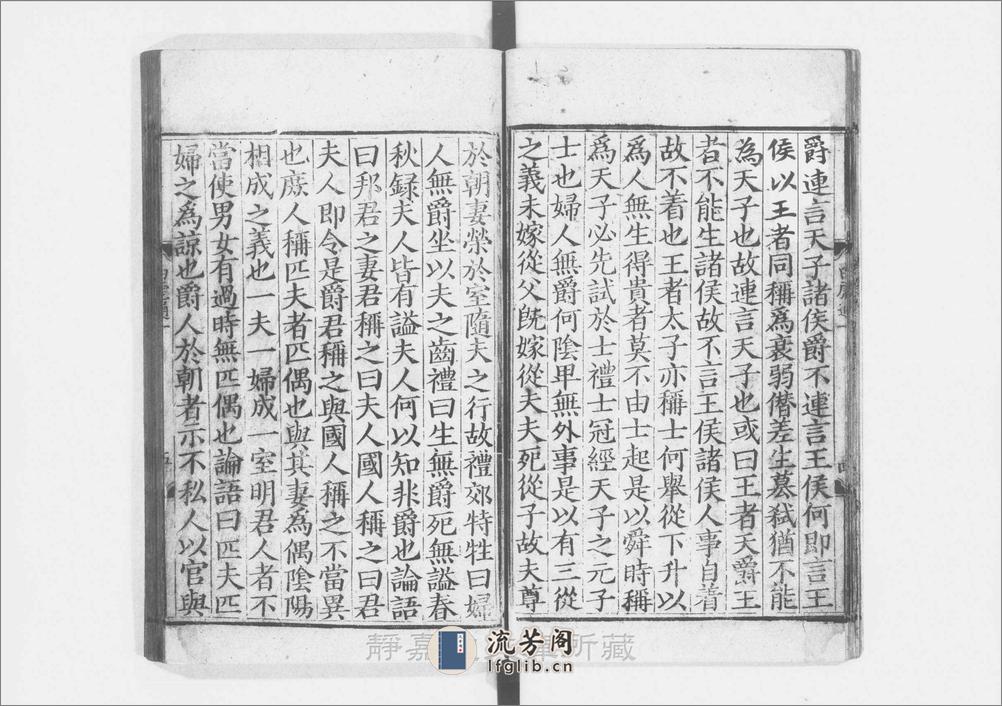 爵連言天子諸侯爵不連言王侯何即言王
侯以王者同稱爲衰弱僣差生慕弑猶不能
為天子也故連言天子也或曰王者天爵王
者不能生諸侯故不言王侯諸侯人事自着
故不着也王者太子亦稱士何舉從下升以
爲人無生得貴者莫不由士起是以舜時稱
爲天子必先試於士禮士冠經天子之元子
士也婦人無爵何陰卑無外事是以有三從
之義未嫁從父旣嫁從夫夫死從子故夫尊
於朝妻榮於室隨夫之行故禮郊特牲曰婦
人無爵坐以夫之齒禮曰生無爵死無謚春
秋録夫人皆有謚夫人何以知非爵也論語
曰邦君之妻君稱之曰夫人國人稱之曰君
夫人即令是爵君稱之與國人稱之不當異
也庶人稱匹夫者匹偶也與其妻爲偶陰陽
相成之義也一夫一婦成一室明君人者不
當使男女有過時無匹偶也論語曰匹夫匹
婦之爲諒也爵人於朝者示不私人以官與
靜嘉 所藏
流芳阁
lfglib.cn